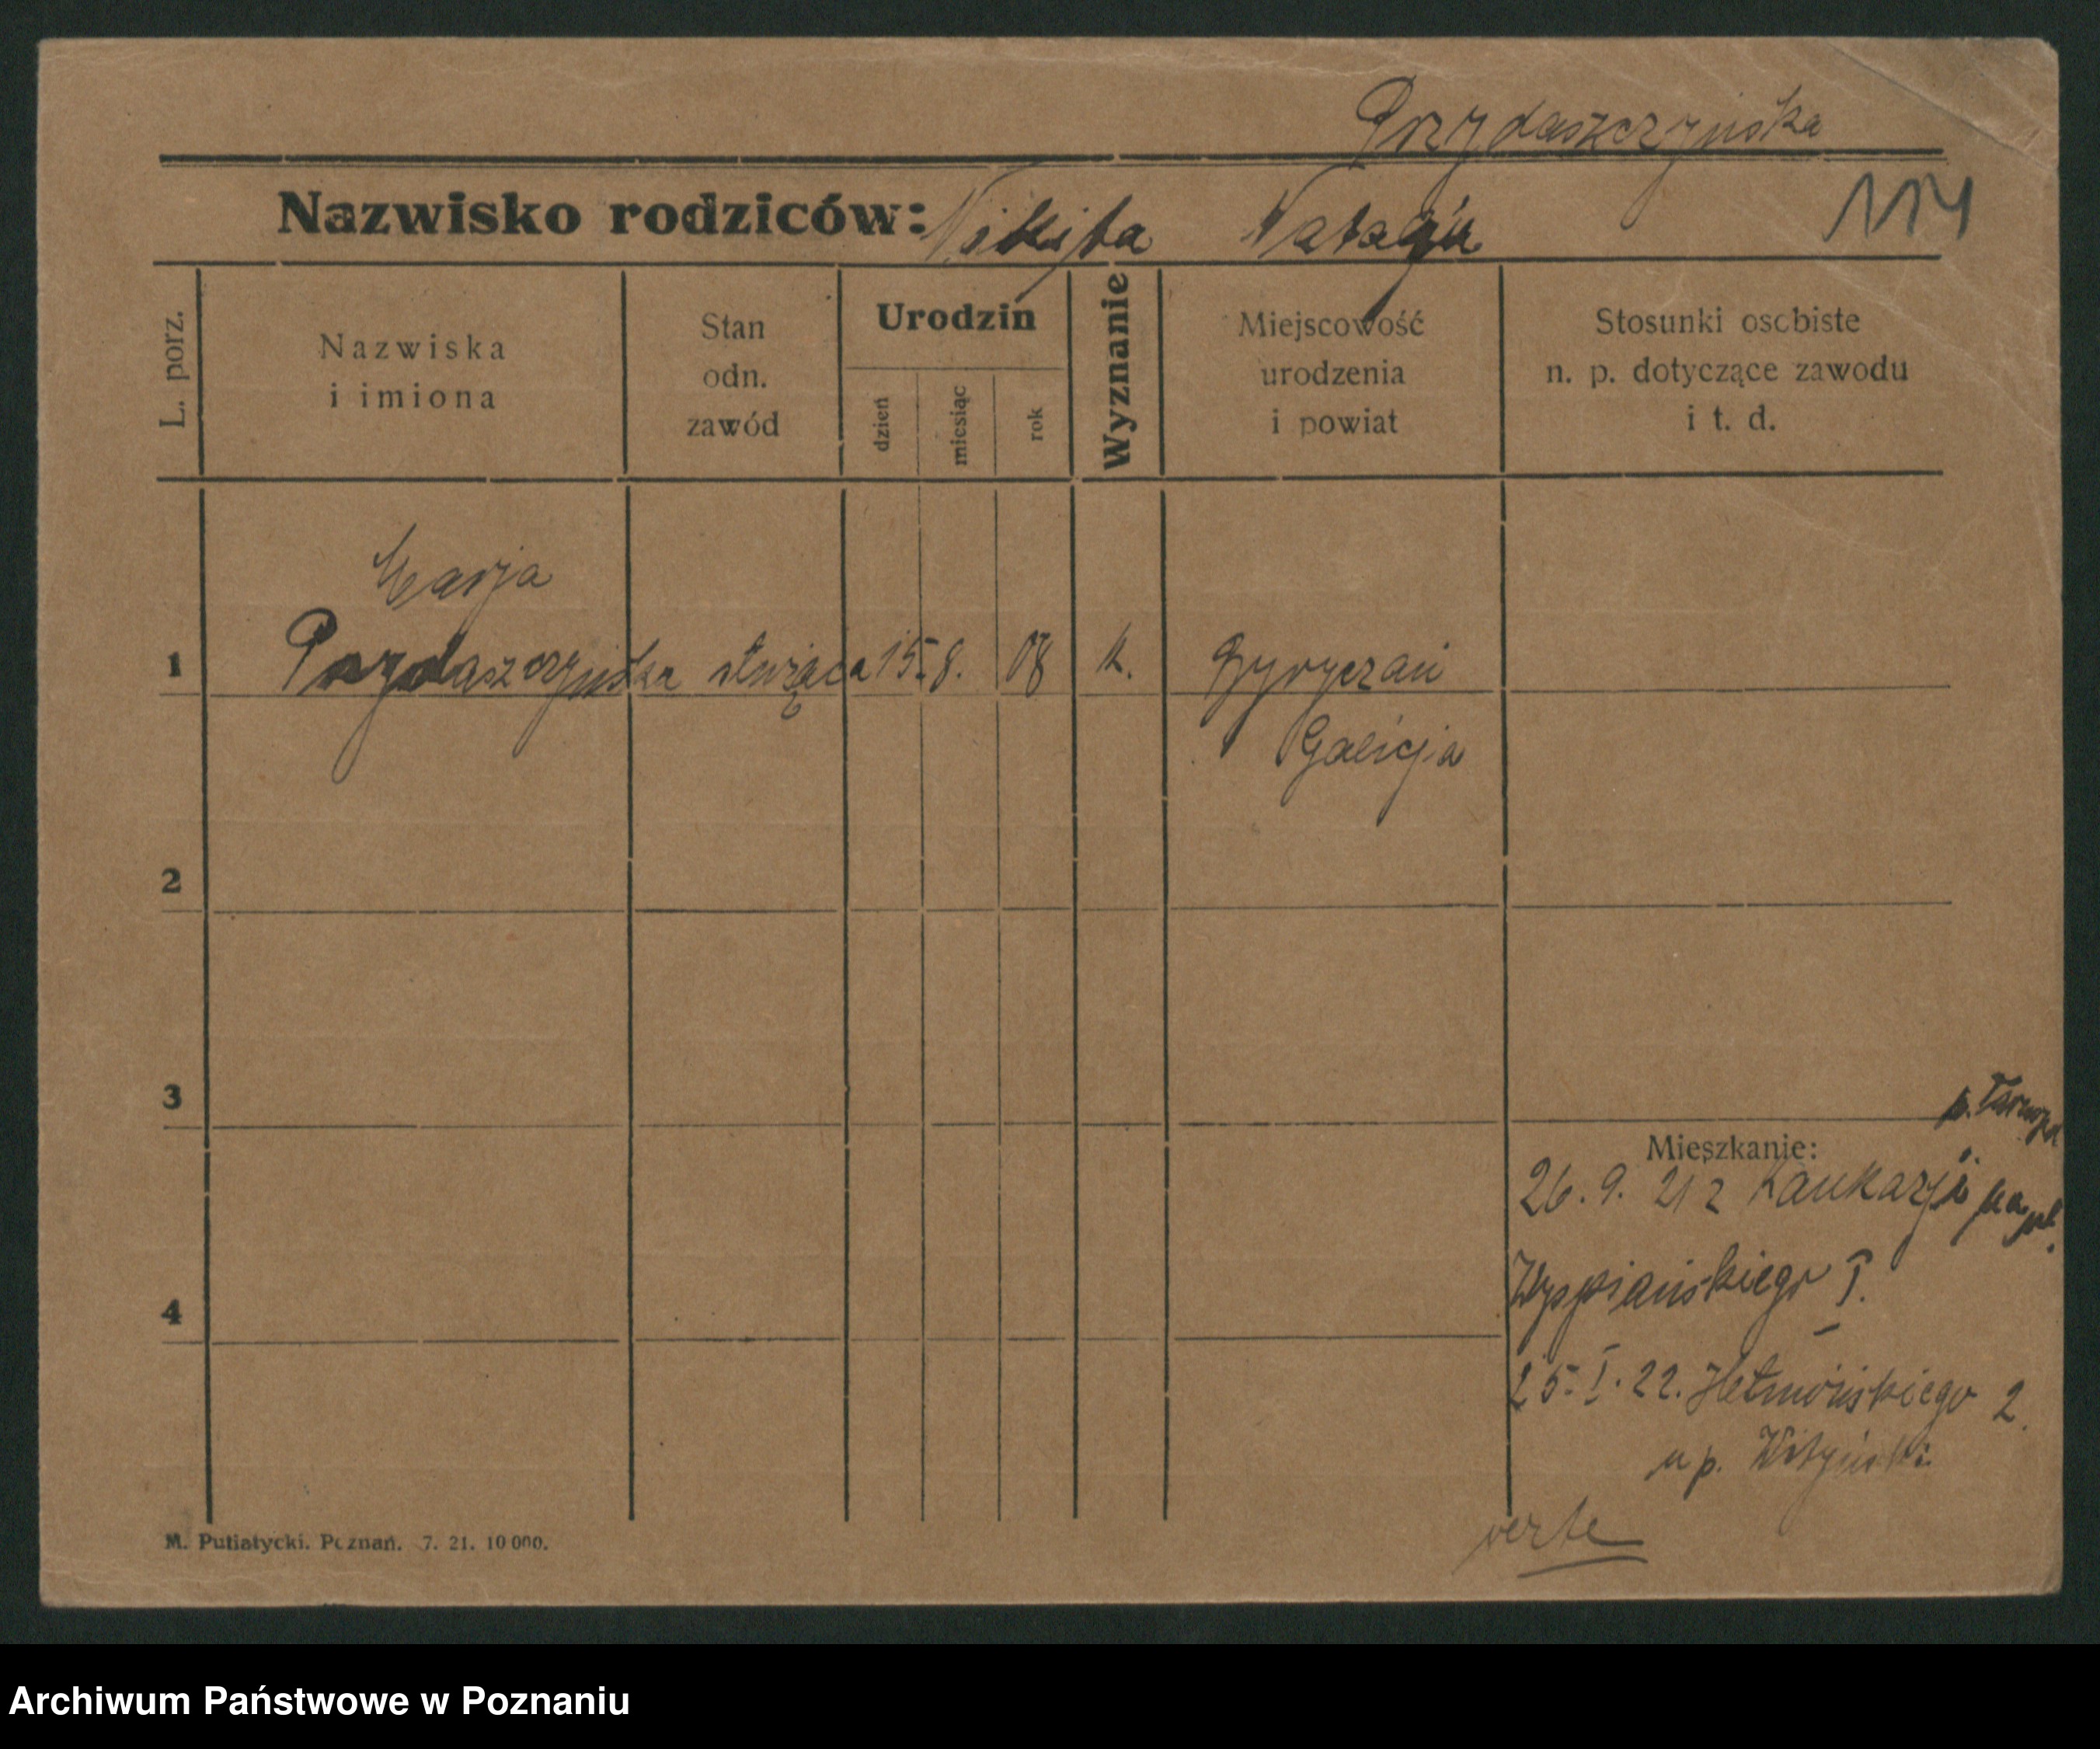 Przydaszczyńska
Nazwisko rodziców: Nikita
114
L. porz.
Nazwiska
i imiona
Stan
odn.
zawód
Urodzin
dzień
miesiąc
rok
Wyznanie
Miejscowość
urodzenia
i powiat
Stosunki osobiste
n. p. dotyczące zawodu
i t. d.
Marja
1 służąca 15. 8. 08 k.
Galicja
2
3
Mieszkanie:
26. 9. 21 z
4
Wyspiańskiego
25. I. 22. 2.
u p.
verte
M. Putiatycki. Poznań. 7. 21. 10 000.
Archiwum Państwowe w Poznaniu